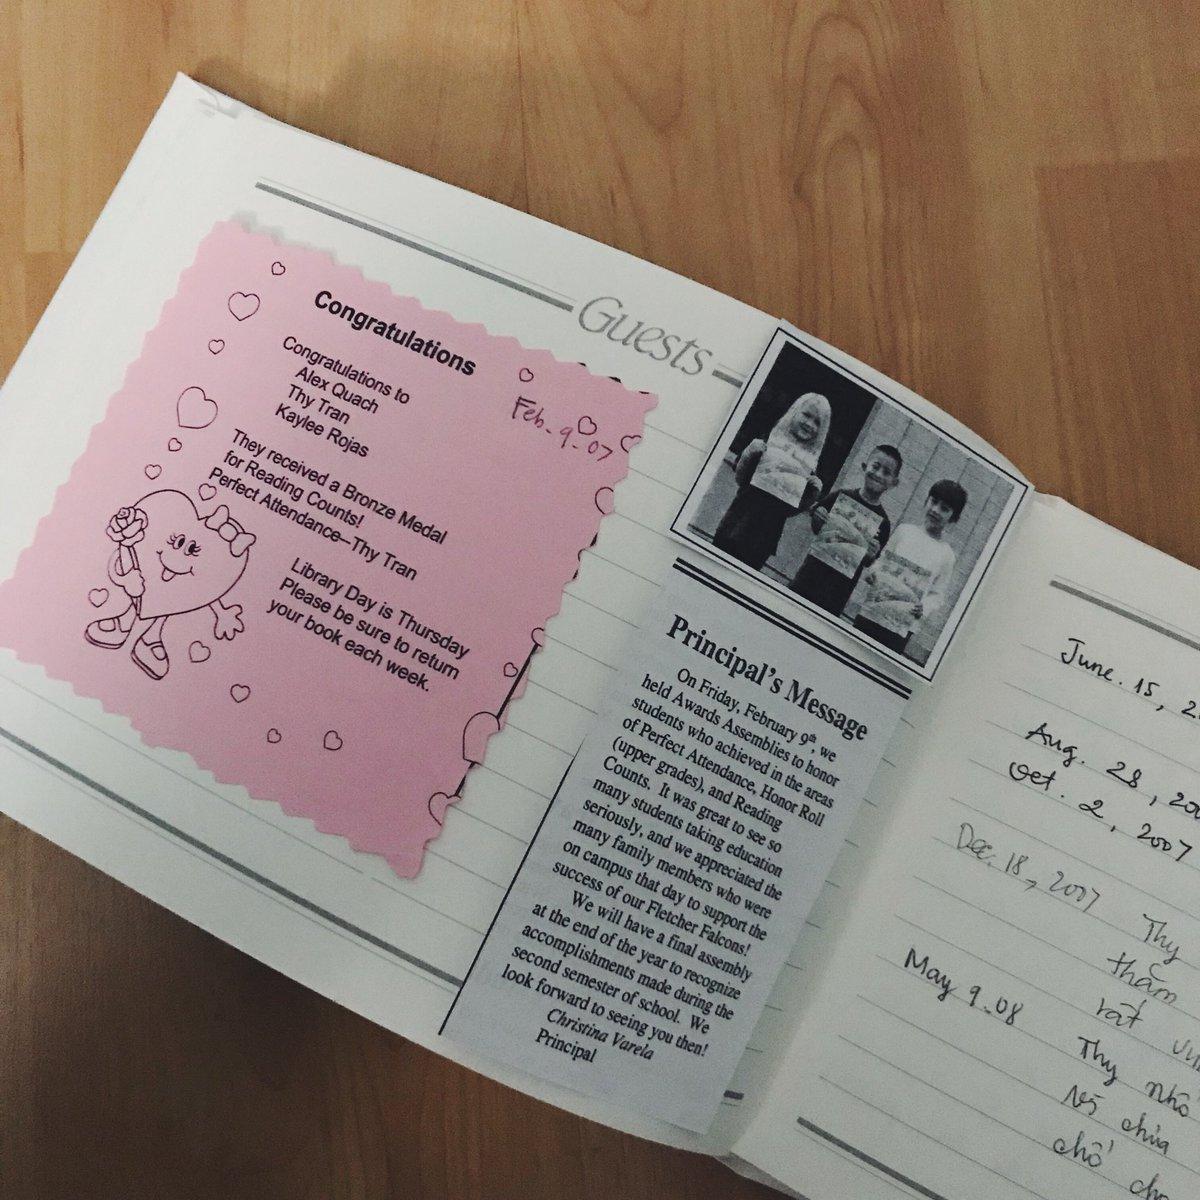 Guests
Congratulations
Feb. 9. 07
Congratulations to
Alex Quach
Thy Tran
Kaylee Rojas
They received a Bronze Medal
for Reading Counts!
Perfect Attendance–Thy Tran
Library Day is Thursday
Please be sure to return
your book each week.
Principal's Message
On Friday, February 9th, we
held Awards Assemblies to honor
students who achieved in the areas
of Perfect Attendance, Honor Roll
(upper grades), and Reading
Counts. It was great to see so
many students taking education
seriously, and we appreciated the
many family members who were
on campus that day to support the
success of our Fletcher Falcons!
We will have a final assembly
at the end of the year to recognize
accomplishments made during the
second semester of school. We
look forward to seeing you then!
Christina Varela
Principal
June. 15,
Aug. 28,
Oct. 2, 2007
Dec. 18, 2007
Thy
thăm
rất
May 9.08
Thy nhỏ
chùa
chỗ